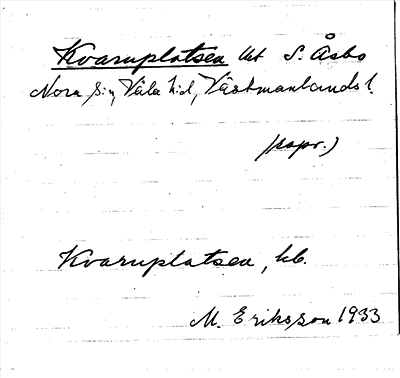 Kvarnplatsen lht S. Åsbo
Nora s:n, Våla hd, Västmanlands l.
(papr.)
Kvarnplatsen, hb.
M. Eriksson 1933